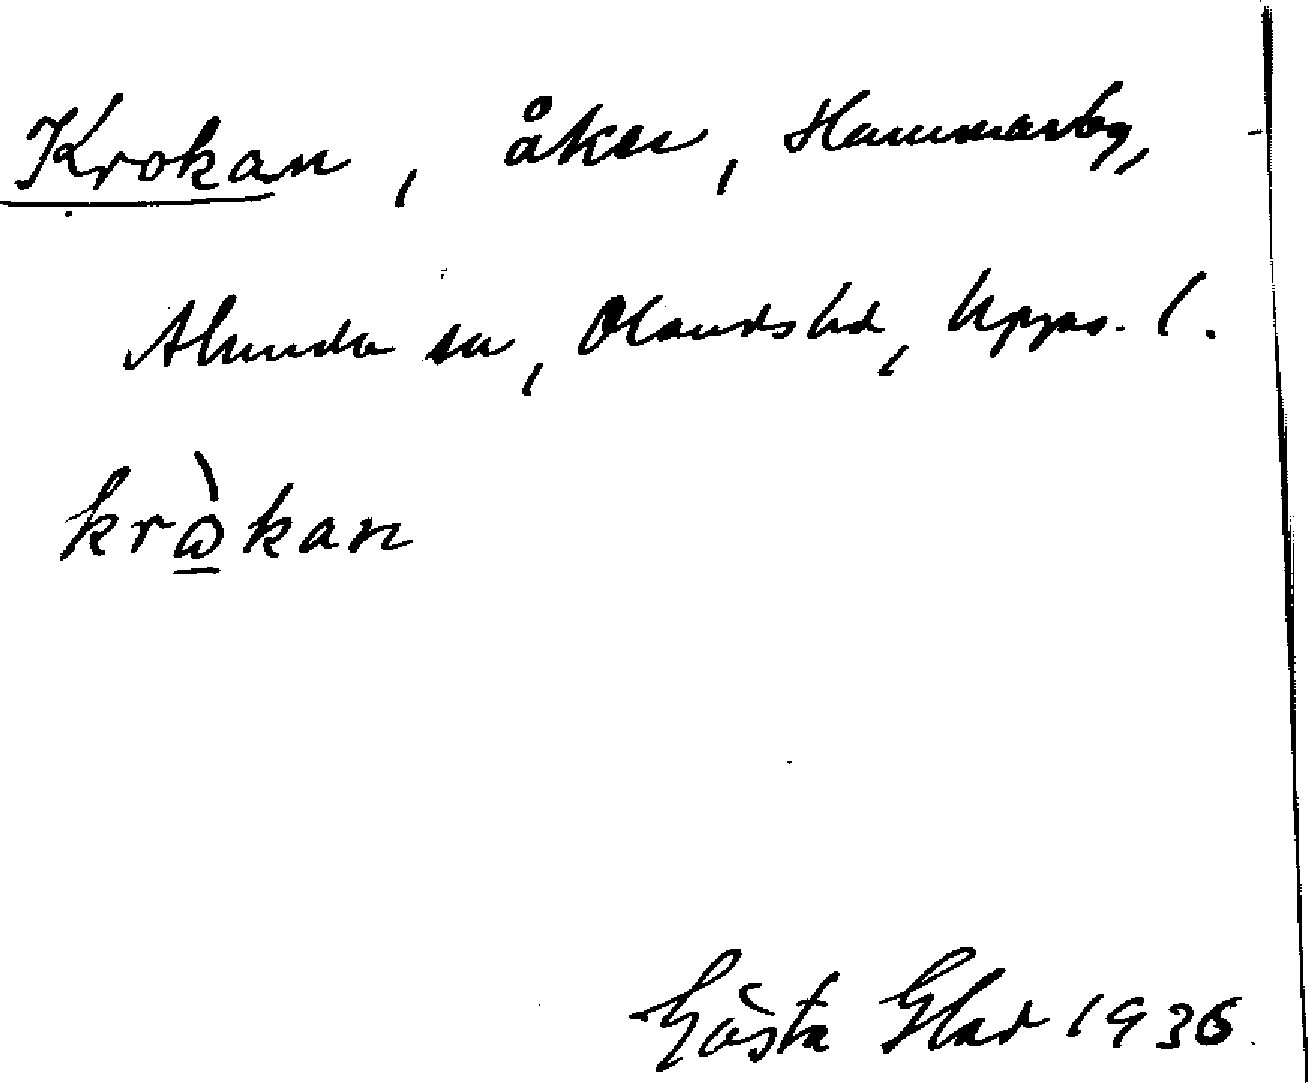 Krokan, åker, Hammarby,
Alunda sn, Olands hd, Upps. l.
krὼ̠kan
Gösta Glad 1936.